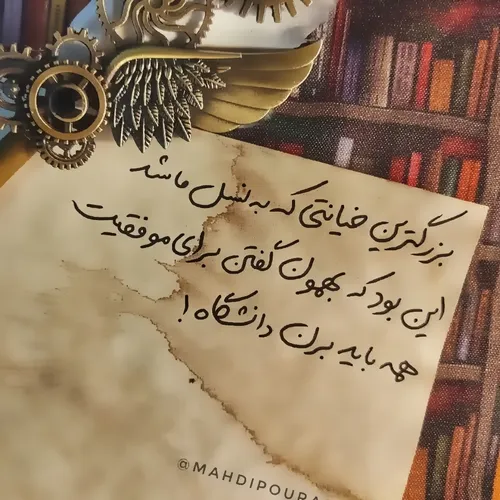 بزرگترین خیانتی که به نسل ما شد
این بود که بهمون گفتن برای موفقیت
همه باید برن دانشگاه!
@MAHDIPOURA